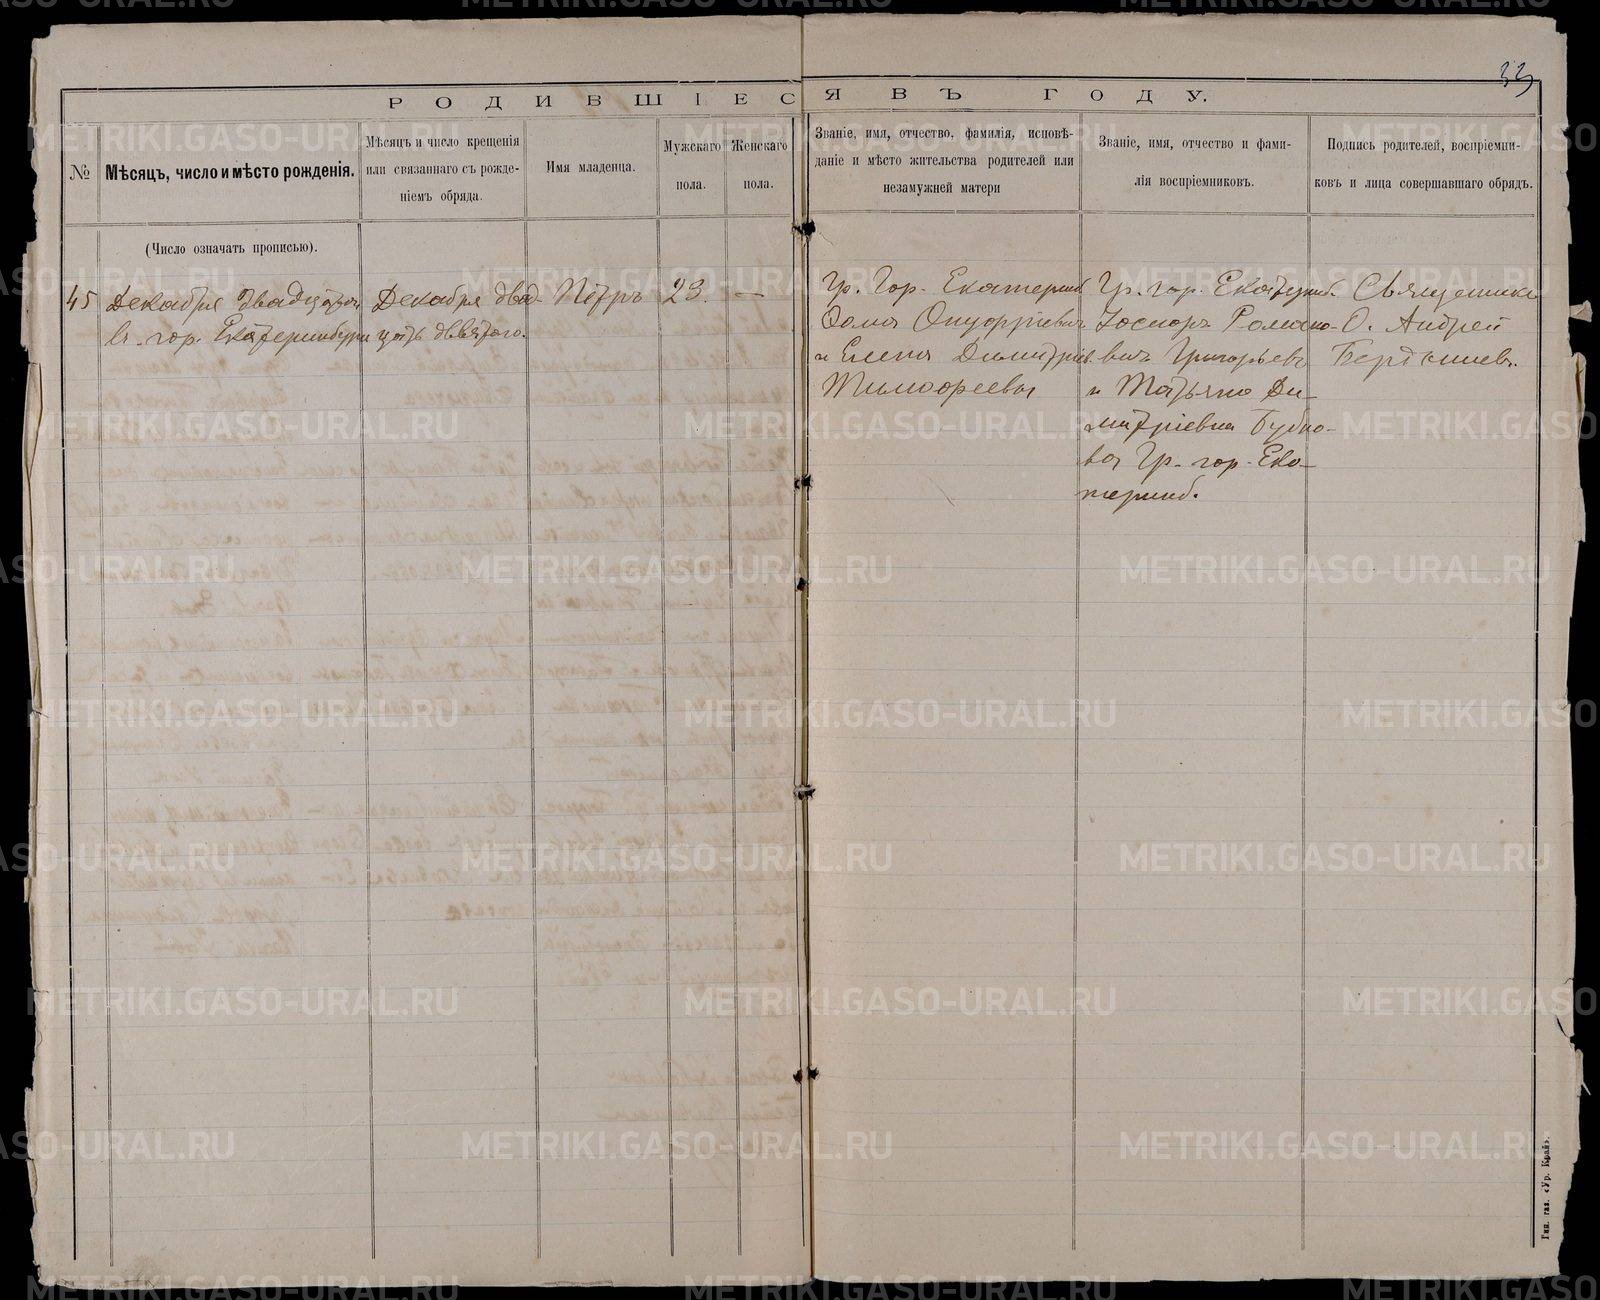 33
РОДИВШІЕСЯ ВЪ ГОДУ.
№
Мѣсяцъ, число и мѣсто рожденія.
Мѣсяцъ и число крещенія
или связаннаго съ рожде-
ніемъ обряда.
Имя младенца.
Мужскаго
пола.
Женскаго
пола.
Званіе, имя, отчество, фамилія, исповѣ-
даніе и мѣсто жительства родителей или
незамужней матери
Званіе, имя, отчество и фами-
лія воспріемниковъ.
Подпись родителей, воспріемни-
ковъ и лица совершавшаго обрядъ.
(Число означать прописью).
45
Декабря двадцатого
в. гор. Екатеринбурги
Декабря двад-
цать девятого.
Петръ
23.
—
Гр. Гор. Екатеринб
Фома Онуфріевич
и Елена Димитріев.
Тимофеева
Гр. гор. Екатеринб.
Романо-
вич Григорьевъ
и Татьяна Ди-
митріевна Бубно-
ва Гр. гор. Ека-
теринб.
Священник
О. Андрей
Бердышев.
Тип. газ. «Ур. Край».
METRIKI.GASO-URAL.RU